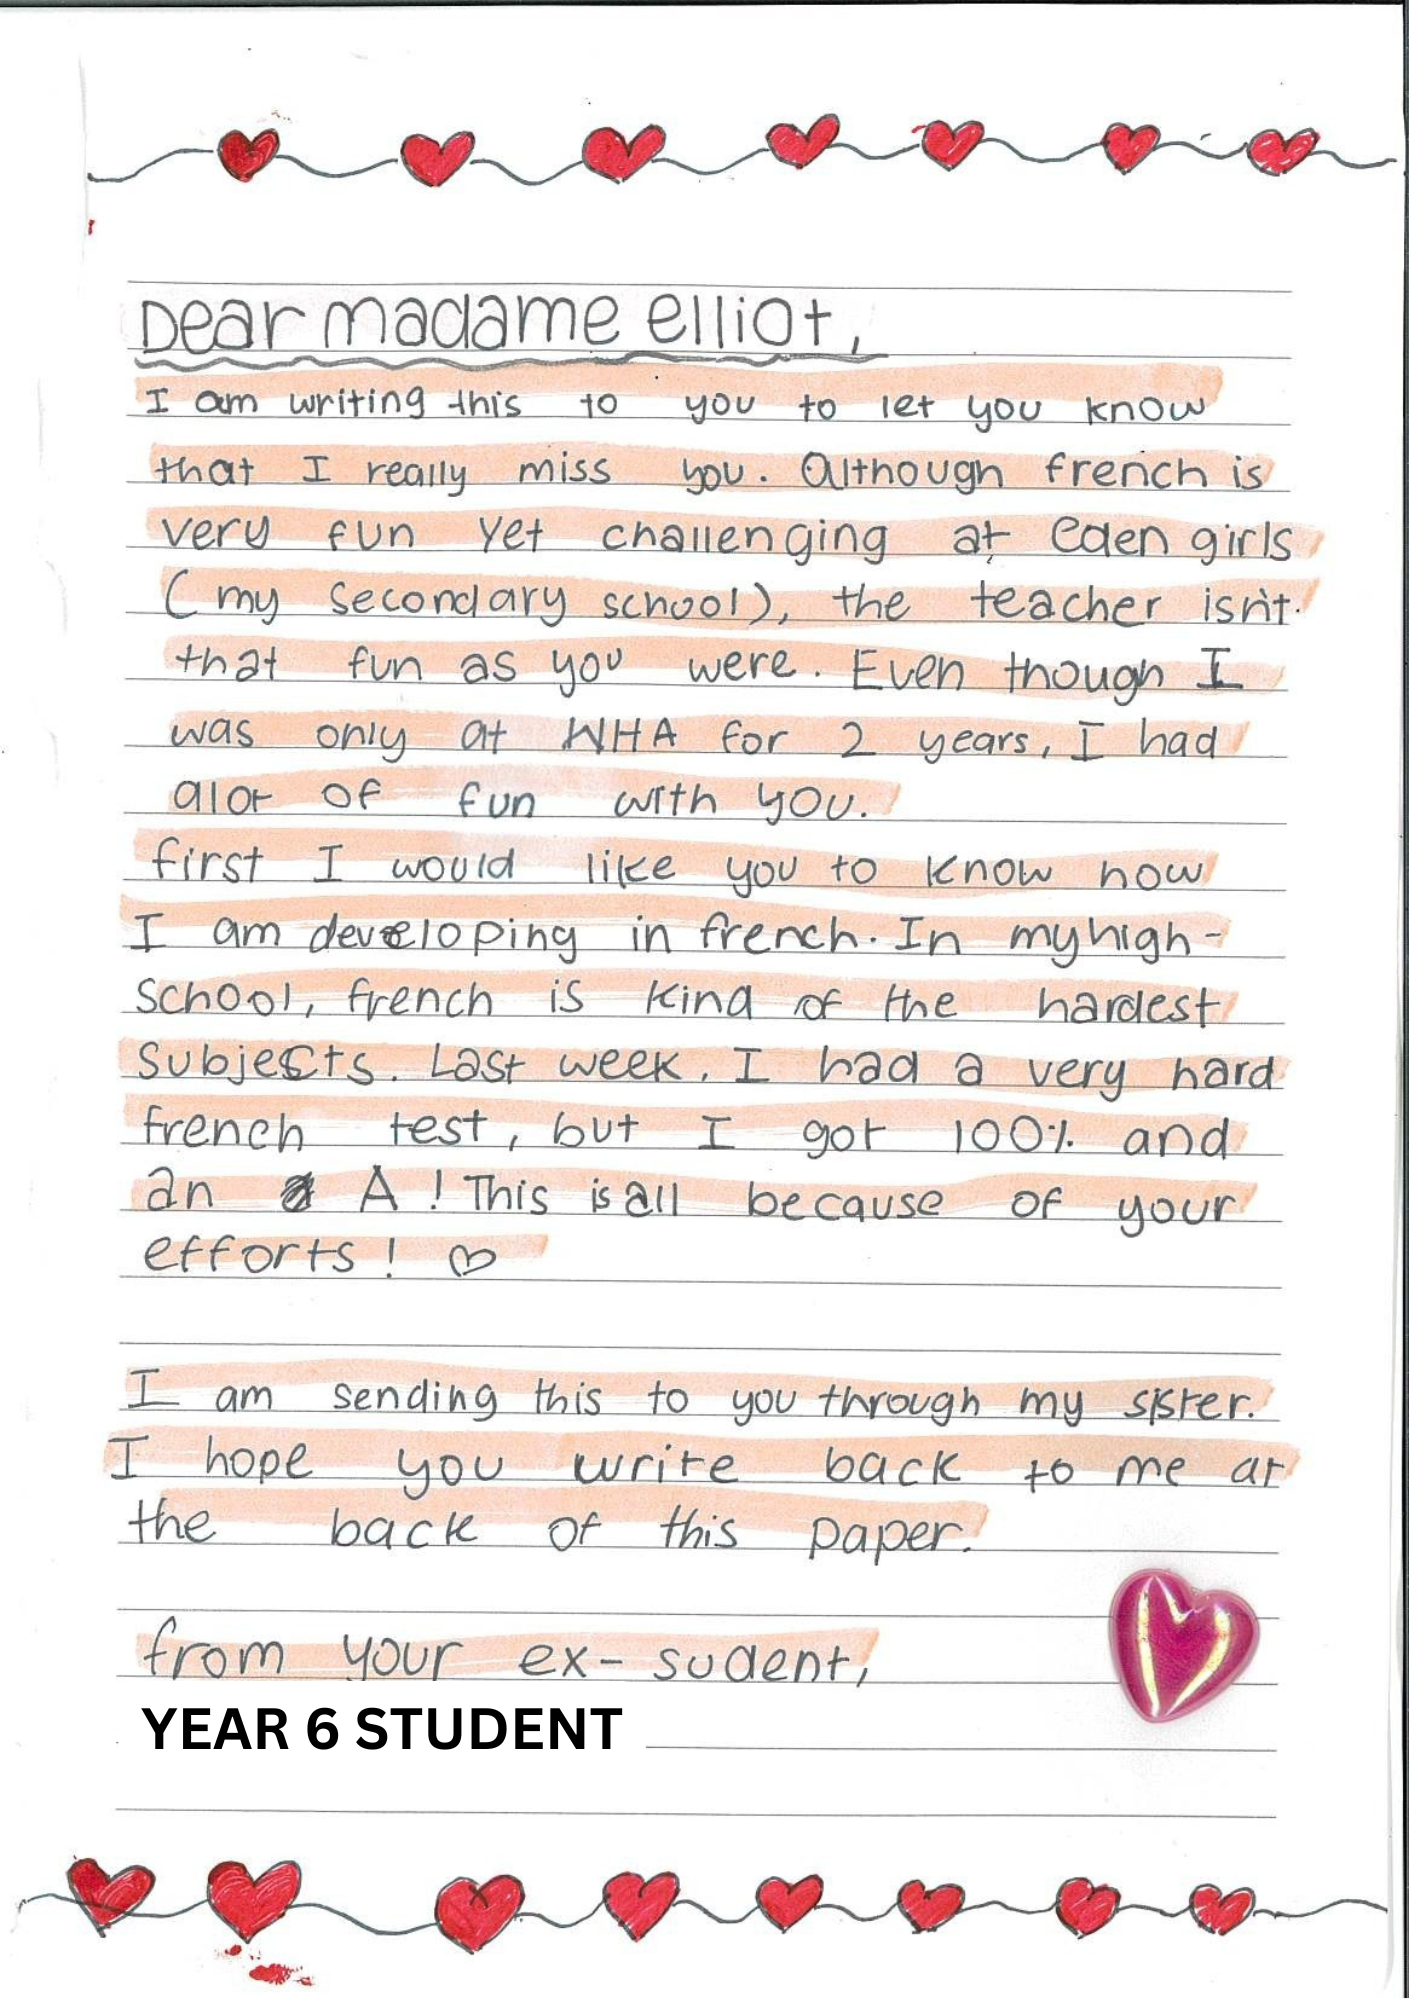 Dear madame elliot,
I am writing this to you to let you know
that I really miss you. Although french is
very fun yet challenging at Eden girls
( my secondary school), the teacher isn't
that fun as you were. Even though I
was only at WHA for 2 years, I had
alot of fun with you.
first I would like you to know how
I am developing in french. In my high-
school, french is kind of the hardest
subjects. Last week, I had a very hard
french test, but I got 100% and
an A! This is all because of your
efforts! ♡
I am sending this to you through my sister.
I hope you write back to me at
the back of this paper.
from your ex- sudent,
YEAR 6 STUDENT